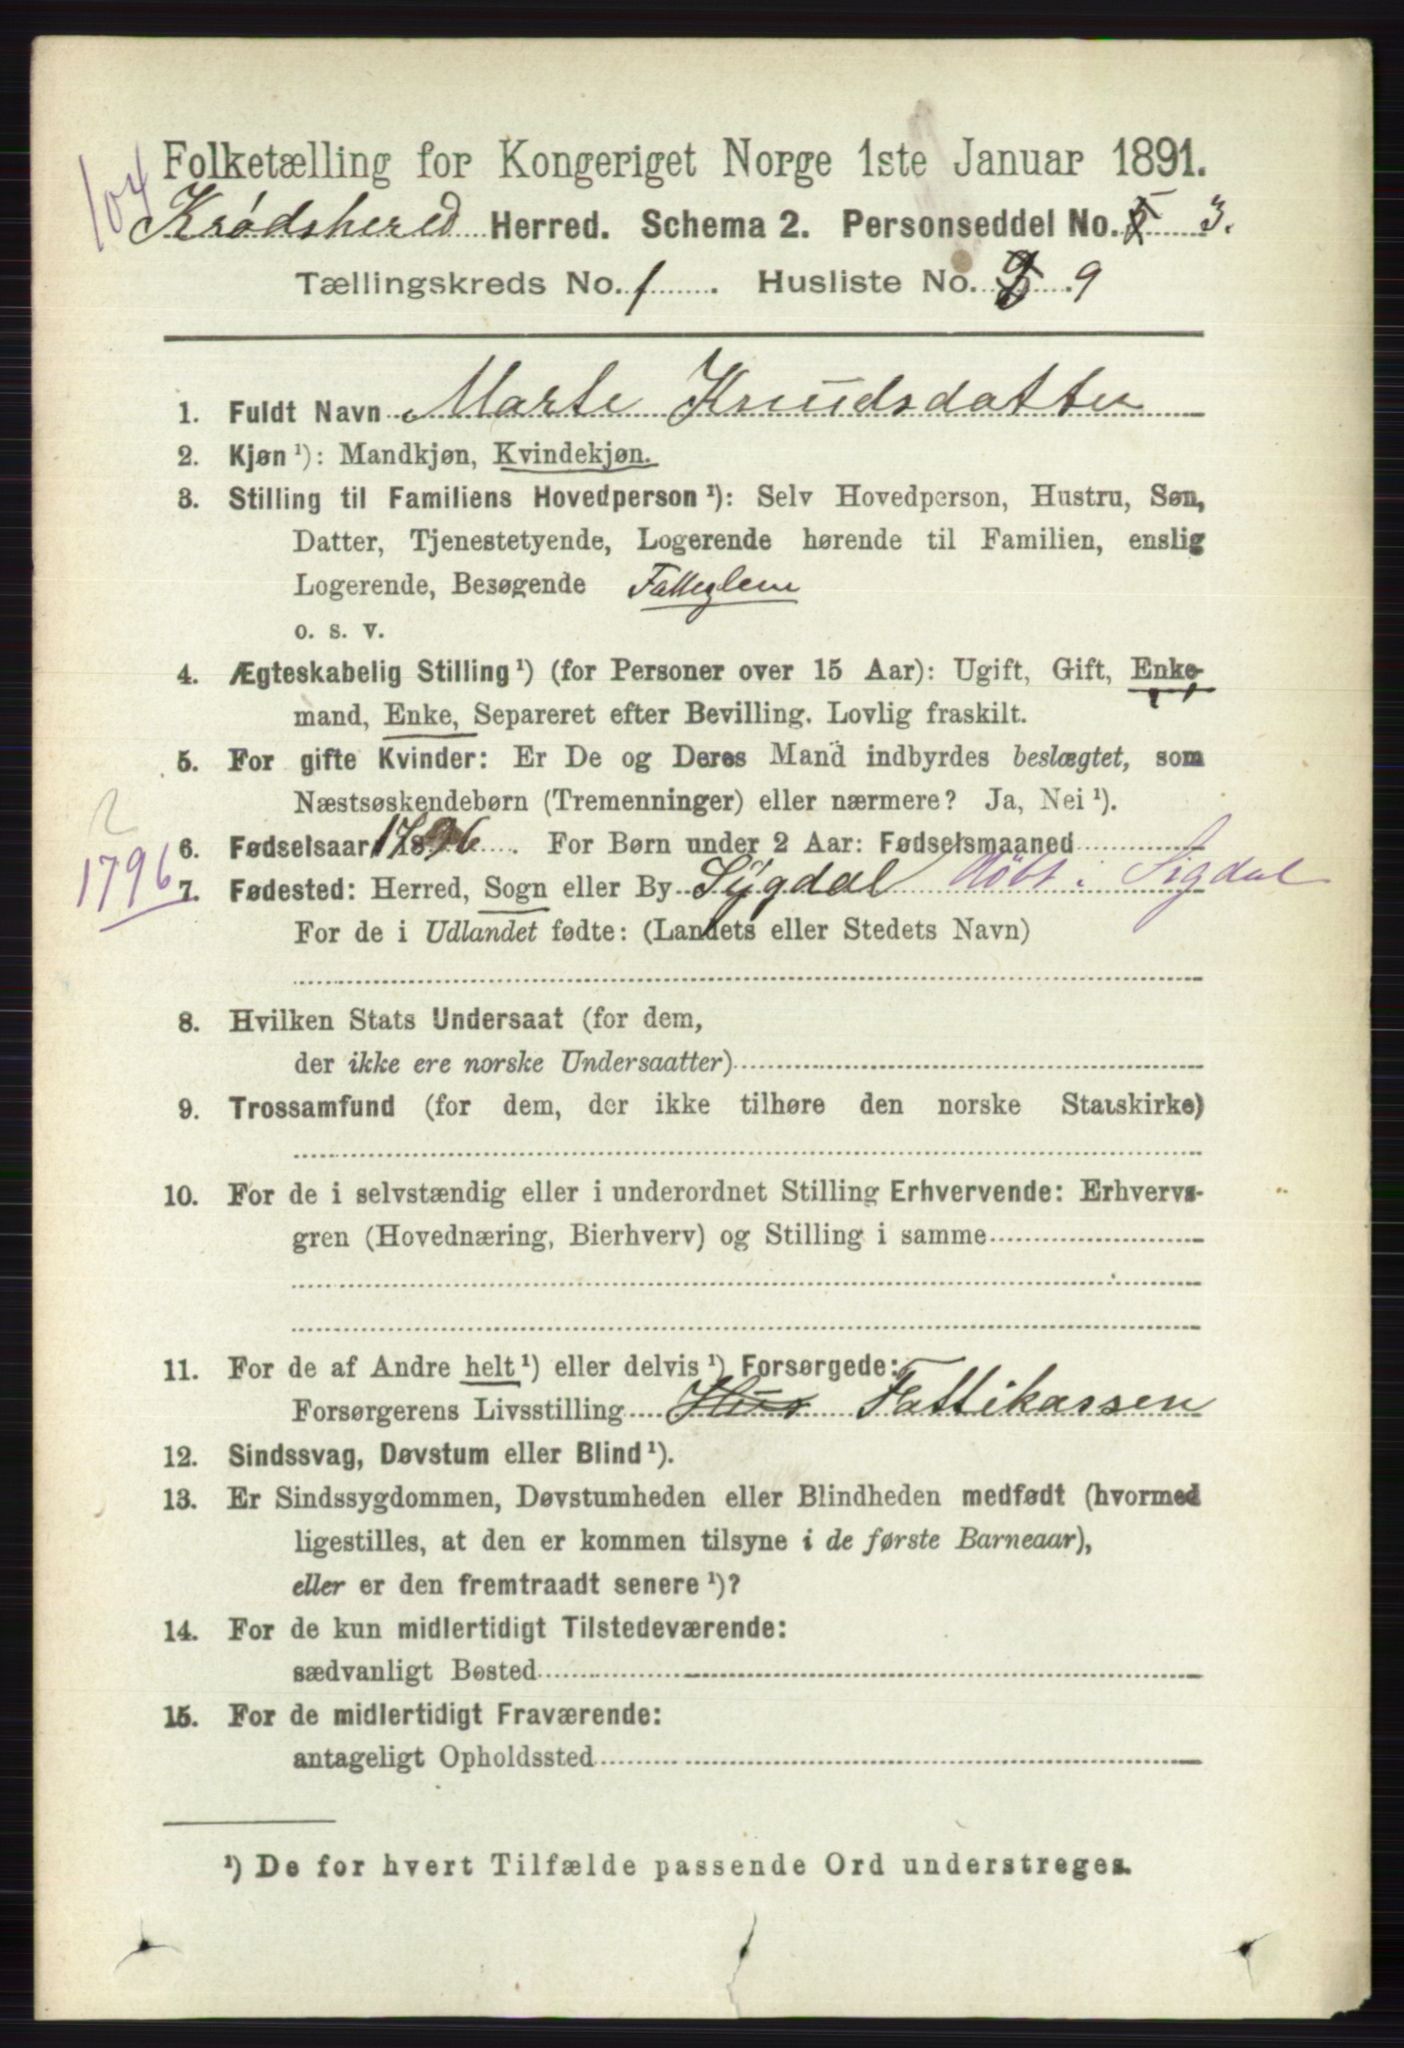 104
Folketælling for Kongeriget Norge 1ste Januar 1891.
Krødshered Herred. Schema 2. Personseddel No. 3.
Tællingskreds No. 1 . Husliste No. 9
1. Fuldt Navn Marte Knudsdatter
2. Kjøn ¹): Mandkjøn, Kvindekjøn.
3. Stilling til Familiens Hovedperson ¹): Selv Hovedperson, Hustru, Søn,
Datter, Tjenestetyende, Logerende hørende til Familien, enslig
Logerende, Besøgende
o. s. v.
4. Ægteskabelig Stilling ¹) (for Personer over 15 Aar): Ugift, Gift, Enke-
mand, Enke, Separeret efter Bevilling. Lovlig fraskilt.
5. For gifte Kvinder: Er De og Deres Mand indbyrdes beslægtet, som
Næstsøskendebørn (Tremenninger) eller nærmere? Ja, Nei ¹).
6. Fødselsaar 1796 . For Børn under 2 Aar: Fødselsmaaned
1796
7. Fødested: Herred, Sogn eller By Sÿgdal i Sigdal
For de i Udlandet fødte: (Landets eller Stedets Navn)
8. Hvilken Stats Undersaat (for dem,
der ikke ere norske Undersaatter)
9. Trossamfund (for dem, der ikke tilhøre den norske Statskirke)
10. For de i selvstændig eller i underordnet Stilling Erhvervende: Erhvervs-
gren (Hovednæring, Bierhverv) og Stilling i samme
11. For de af Andre helt ¹) eller delvis ¹) Forsørgede:
Forsørgerens Livsstilling Hus Fattikassen
12. Sindssvag, Døvstum eller Blind ¹).
13. Er Sindssygdommen, Døvstumheden eller Blindheden medfødt (hvormed
ligestilles, at den er kommen tilsyne i de første Barneaar),
eller er den fremtraadt senere ¹)?
14. For de kun midlertidigt Tilstedeværende:
sædvanligt Bosted
15. For de midlertidigt Fraværende:
antageligt Opholdssted
¹) De for hvert Tilfælde passende Ord understreges.